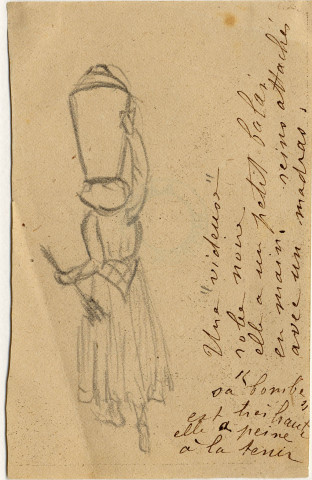 Une "videuse"
robe noire
elle a un petit balai
en main. reins attachés
avec un madras.
sa "bombe"
est très haute
elle a peine
à la tenir